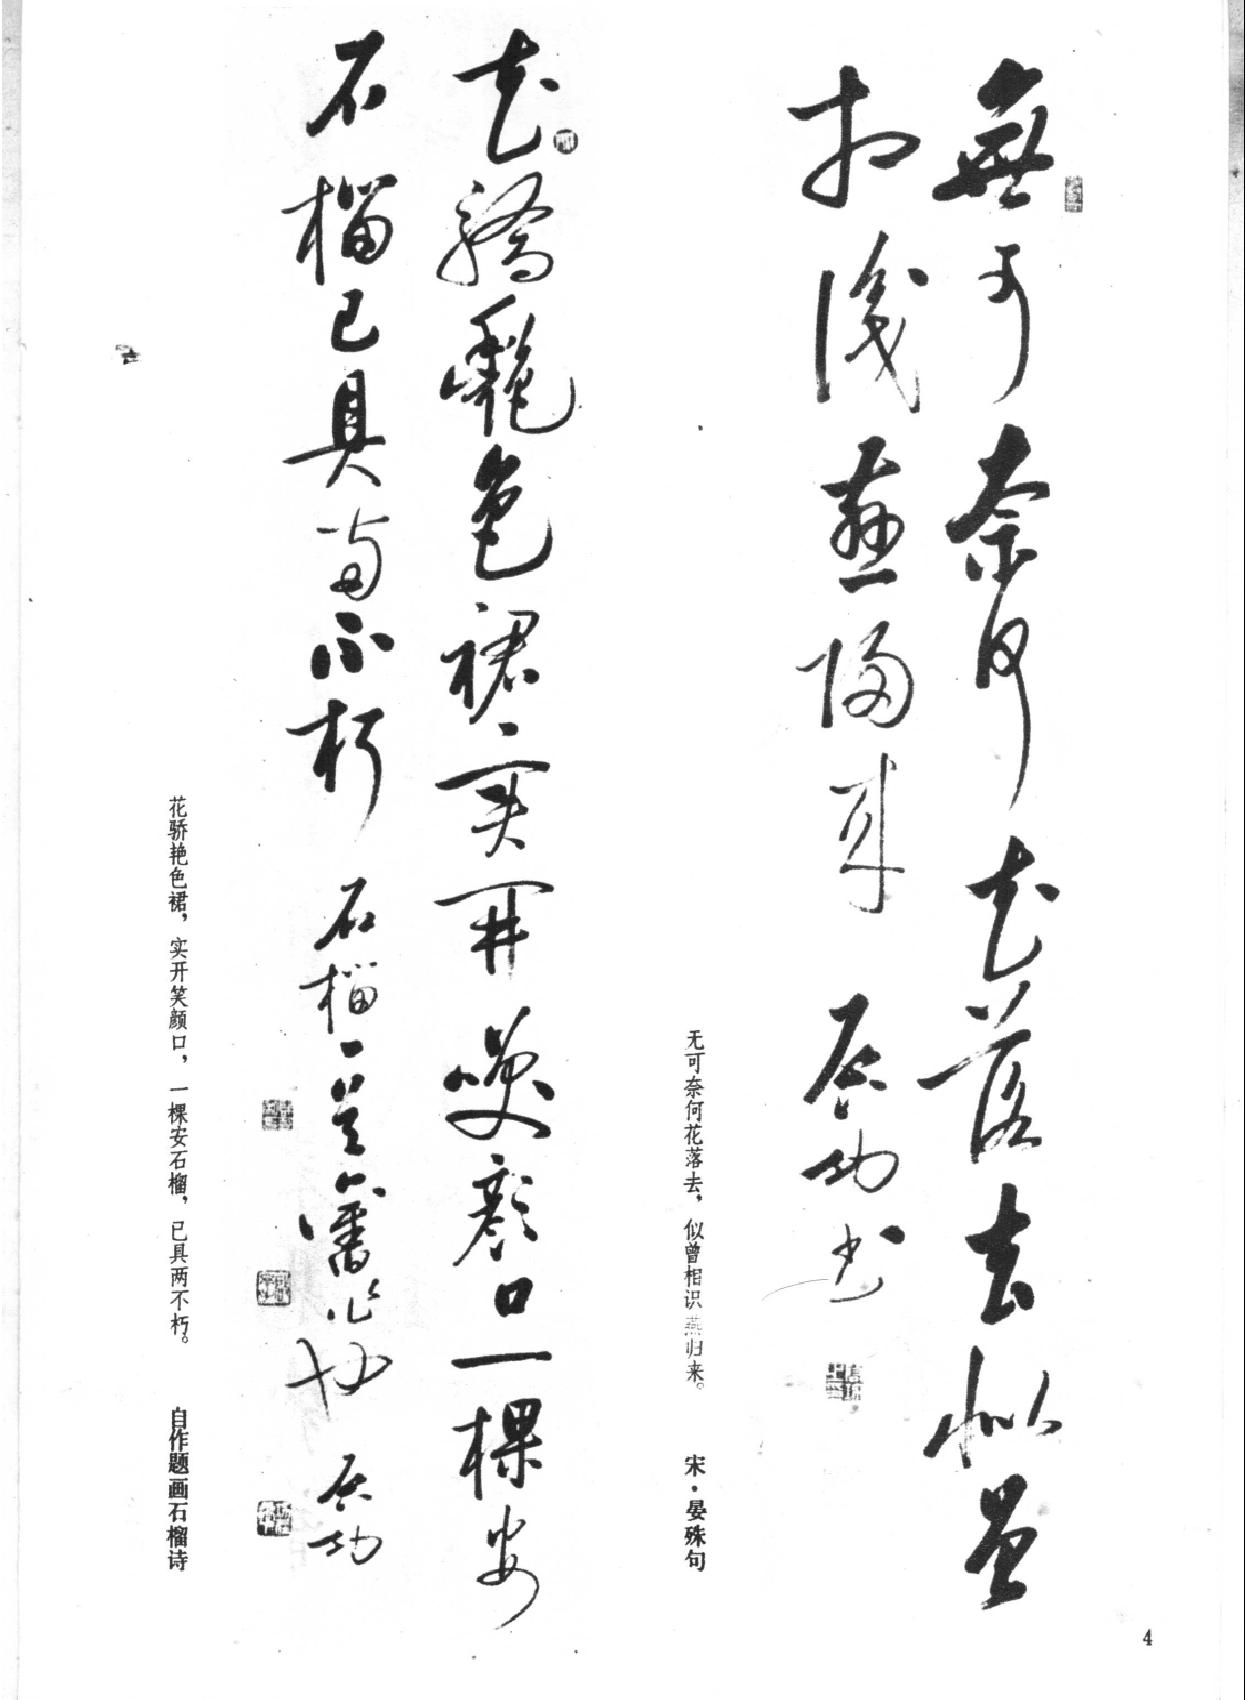 無可奈何花落去似曾
相識燕歸来 启功书
无可奈何花落去，似曾相识燕归来。 宋·晏殊句
花驕艷色裙实開噗顏口一棵安
石榴已具两不朽 石榴一 旧作 启功
花骄艳色裙，实开笑颜口，一棵安石榴，已具两不朽。 自作题画石榴诗
4